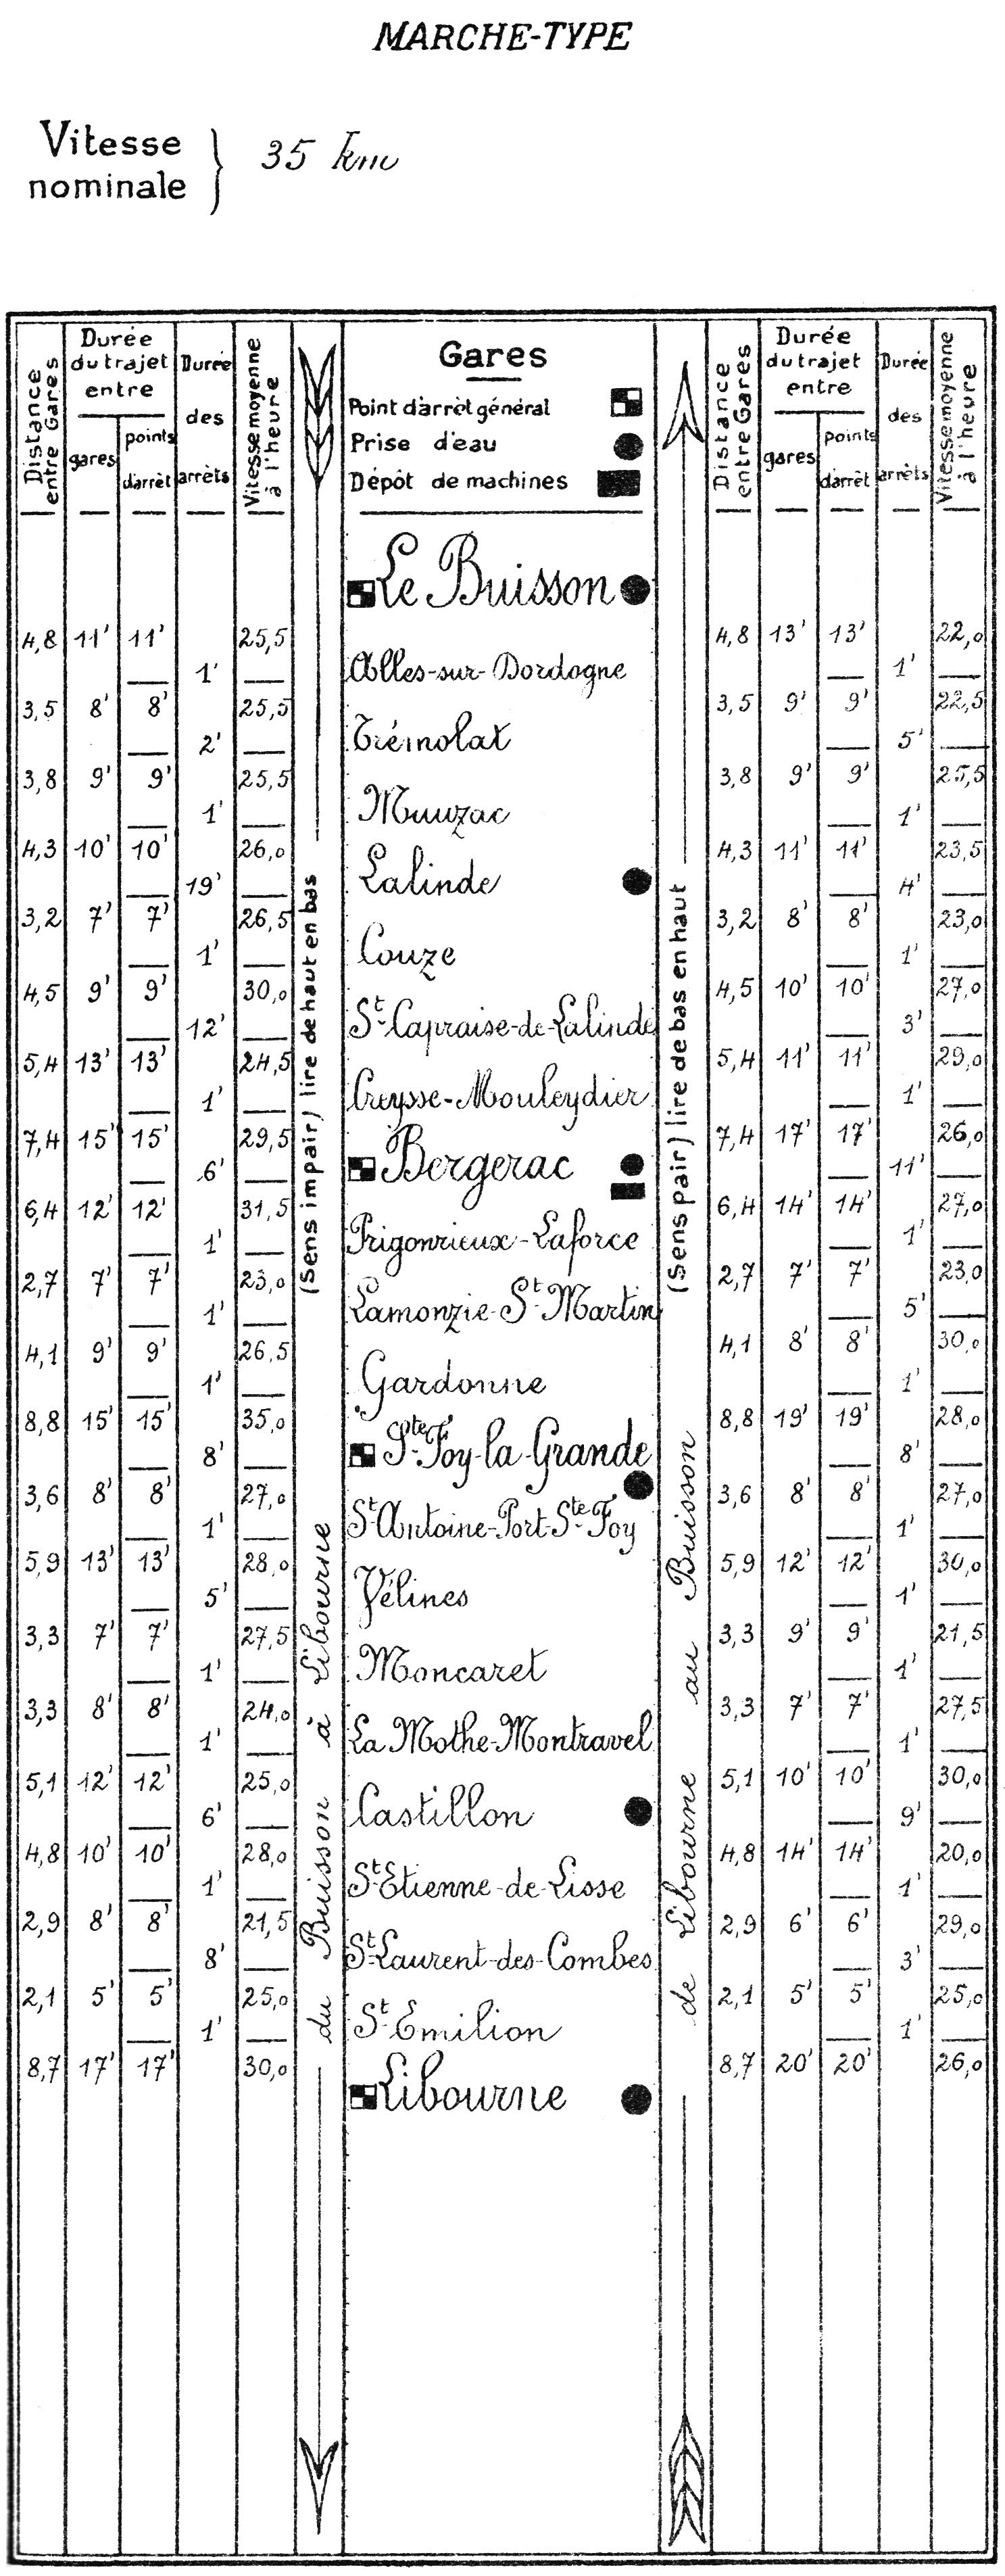 MARCHE-TYPE
Vitesse nominale } 35 km
Distance entre Gares
Durée du trajet entre
gares
points d'arrêt
Durée des arrêts
Vitesse moyenne à l'heure
Gares
Point d'arrêt général
Prise d'eau
Dépôt de machines
Distance entre Gares
Durée du trajet entre
gares
points d'arrêt
Durée des arrêts
Vitesse moyenne à l'heure
(Sens impair) lire de haut en bas
du Buisson à Libourne
(Sens Pair) lire de bas en haut
de Libourne au Buisson
Le Buisson
4,8 11' 11' 25,5 4,8 13' 13' 22,0
1' Alles-sur-Dordogne 1'
3,5 8' 8' 25,5 3,5 9' 9' 22,5
2' Trémolat 5'
3,8 9' 9' 25,5 3,8 9' 9' 25,5
1' Mauzac 1'
4,3 10' 10' 26,0 4,3 11' 11' 23,5
19' Lalinde 4'
3,2 7' 7' 26,5 3,2 8' 8' 23,0
1' Couze 1'
4,5 9' 9' 30,0 4,5 10' 10' 27,0
12' St-Capraise-de-Lalinde 3'
5,4 13' 13' 24,5 5,4 11' 11' 29,0
1' Creysse-Mouleydier 1'
7,4 15' 15' 29,5 7,4 17' 17' 26,0
6' Bergerac 11'
6,4 12' 12' 31,5 6,4 14' 14' 27,0
1' Prigonrieux-Laforce 1'
2,7 7' 7' 23,0 2,7 7' 7' 23,0
1' Lamonzie-St-Martin 5'
4,1 9' 9' 26,5 4,1 8' 8' 30,0
1' Gardonne 1'
8,8 15' 15' 35,0 8,8 19' 19' 28,0
8' Ste-Foy-la-Grande 8'
3,6 8' 8' 27,0 3,6 8' 8' 27,0
1' St-Antoine-Port-Ste-Foy 1'
5,9 13' 13' 28,0 5,9 12' 12' 30,0
5' Vélines 1'
3,3 7' 7' 27,5 3,3 9' 9' 21,5
1' Moncaret 1'
3,3 8' 8' 24,0 3,3 7' 7' 27,5
1' La Mothe-Montravel 1'
5,1 12' 12' 25,0 5,1 10' 10' 30,0
6' Castillon 9'
4,8 10' 10' 28,0 4,8 14' 14' 20,0
1' St-Etienne-de-Lisse 1'
2,9 8' 8' 21,5 2,9 6' 6' 29,0
8' St-Laurent-des-Combes 3'
2,1 5' 5' 25,0 2,1 5' 5' 25,0
1' St-Emilion 1'
8,7 17' 17' 30,0 8,7 20' 20' 26,0
Libourne